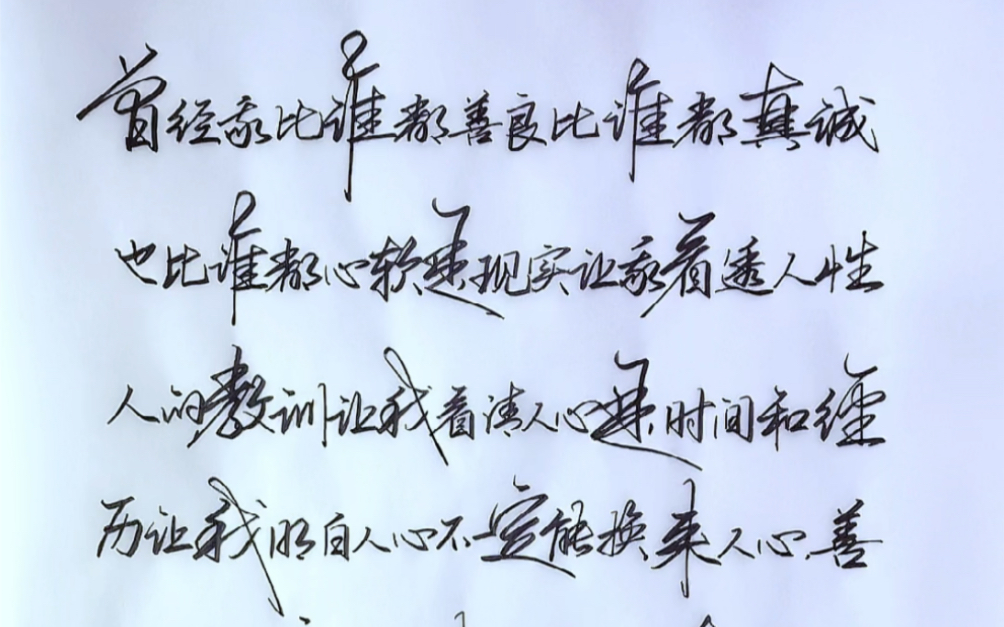 曾经我比谁都善良比谁都真诚
也比谁都心软是现实让我看透人性
人的教训让我看清人心是时间和经
历让我明白人心不一定能换来人心善